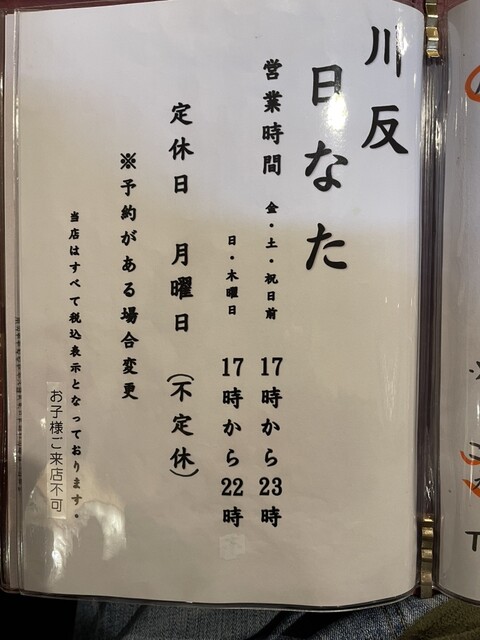 川反
日なた
営業時間 金・土・祝日前 17時から23時
日・木曜日 17時から22時
定休日 月曜日 (不定休)
※予約がある場合変更
当店はすべて税込表示となっております。
お子様ご来店不可